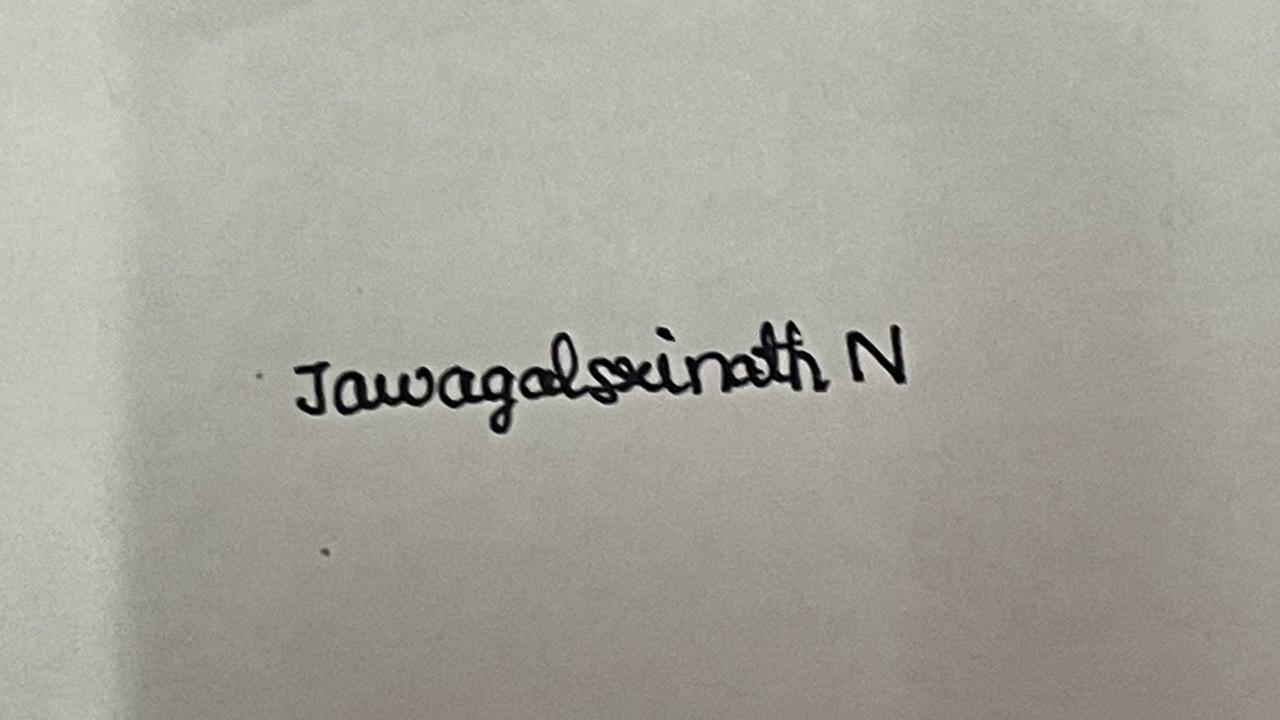 Jawagalsrinath N